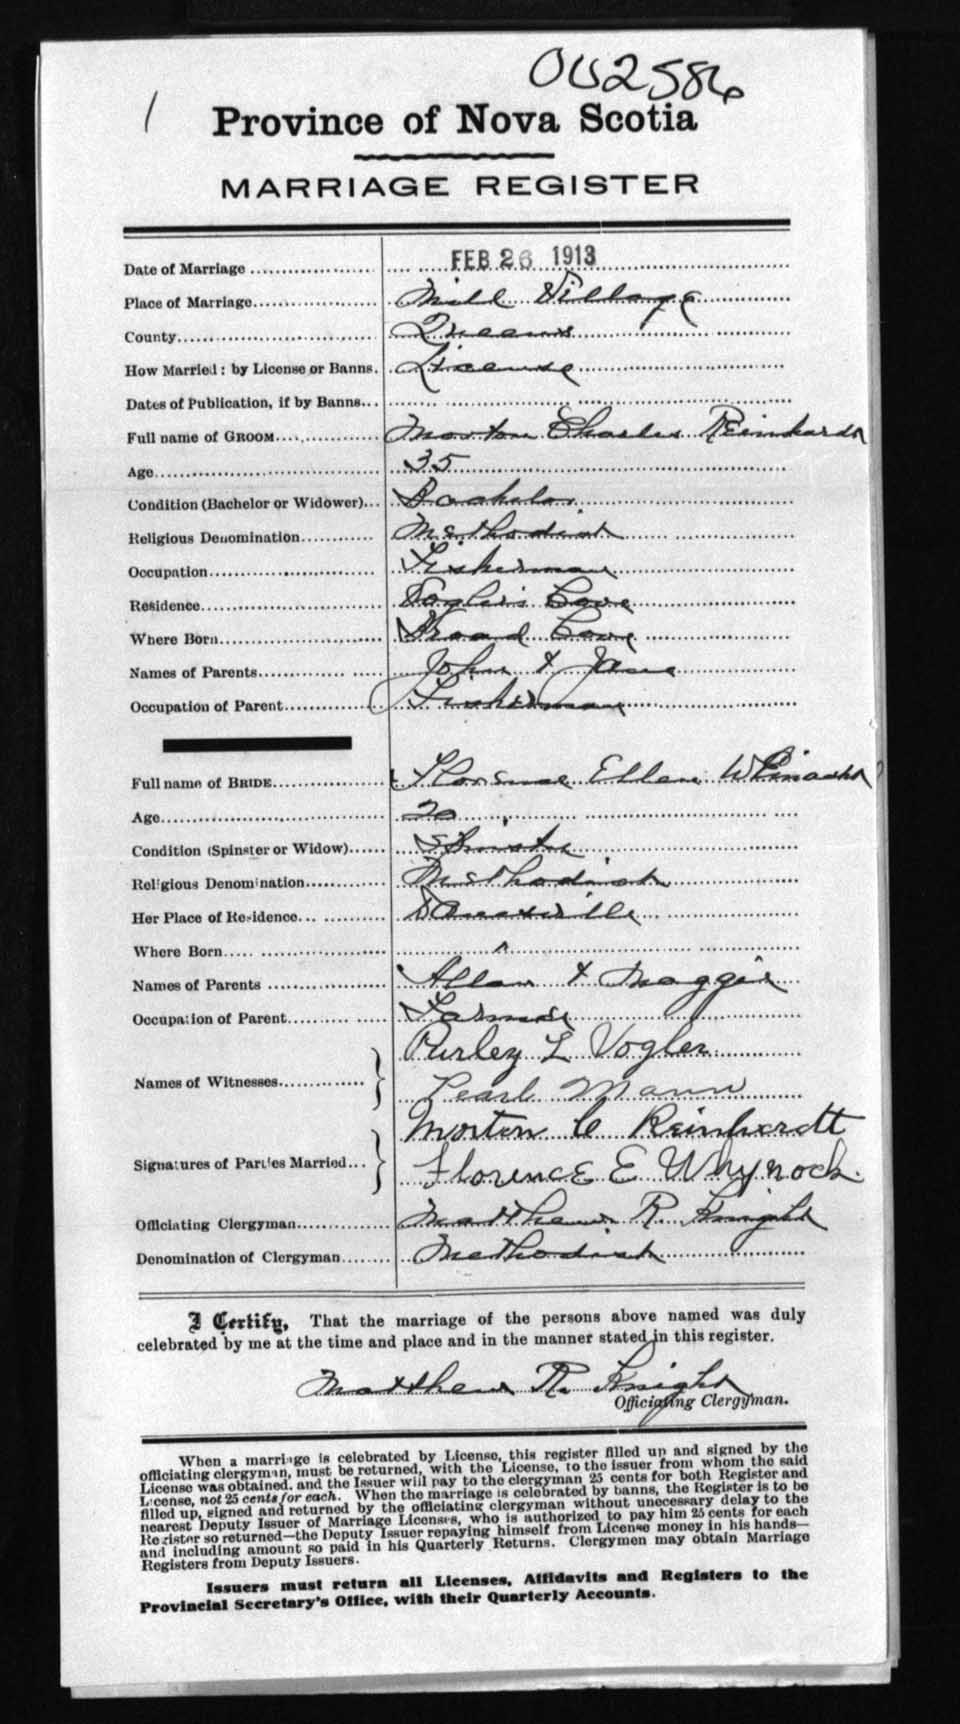 002586
1
Province of Nova Scotia
MARRIAGE REGISTER
Date of Marriage FEB 26 1913
Place of Marriage Mill Village
County Queens
How Married: by License or Banns. License
Dates of Publication, if by Banns
Full name of GROOM Morton Charles Reinhardt
Age 35
Condition (Bachelor or Widower) Bachelor
Religious Denomination Methodist
Occupation Fisherman
Residence Vogler's Cove
Where Born Broad Cove
Names of Parents John & Jane
Occupation of Parent Fisherman
Full name of BRIDE Florence Ellen
Age 20
Condition (Spinster or Widow) Spinster
Religious Denomination Methodist
Her Place of Residence
Where Born "
Names of Parents Allan & Maggie
Occupation of Parent Farmer
Names of Witnesses Purley L Vogler
Pearl Mann
Signatures of Parties Married Morton C Reinhardt
Florence E Whynock.
Officiating Clergyman Matthew R. Knight
Denomination of Clergyman Methodist
I Certify, That the marriage of the persons above named was duly
celebrated by me at the time and place and in the manner stated in this register.
Matthew R. Knight
Officiating Clergyman.
When a marriage is celebrated by License, this register filled up and signed by the
officiating clergyman, must be returned, with the License, to the issuer from whom the said
License was obtained, and the Issuer will pay to the clergyman 25 cents for both Register and
License, not 25 cents for each. When the marriage is celebrated by banns, the Register is to be
filled up, signed and returned by the officiating clergyman without unecessary delay to the
nearest Deputy Issuer of Marriage Licenses, who is authorized to pay him 25 cents for each
Register so returned—the Deputy Issuer repaying himself from License money in his hands—
and including amount so paid in his Quarterly Returns. Clergymen may obtain Marriage
Registers from Deputy Issuers.
Issuers must return all Licenses, Affidavits and Registers to the
Provincial Secretary's Office, with their Quarterly Accounts.